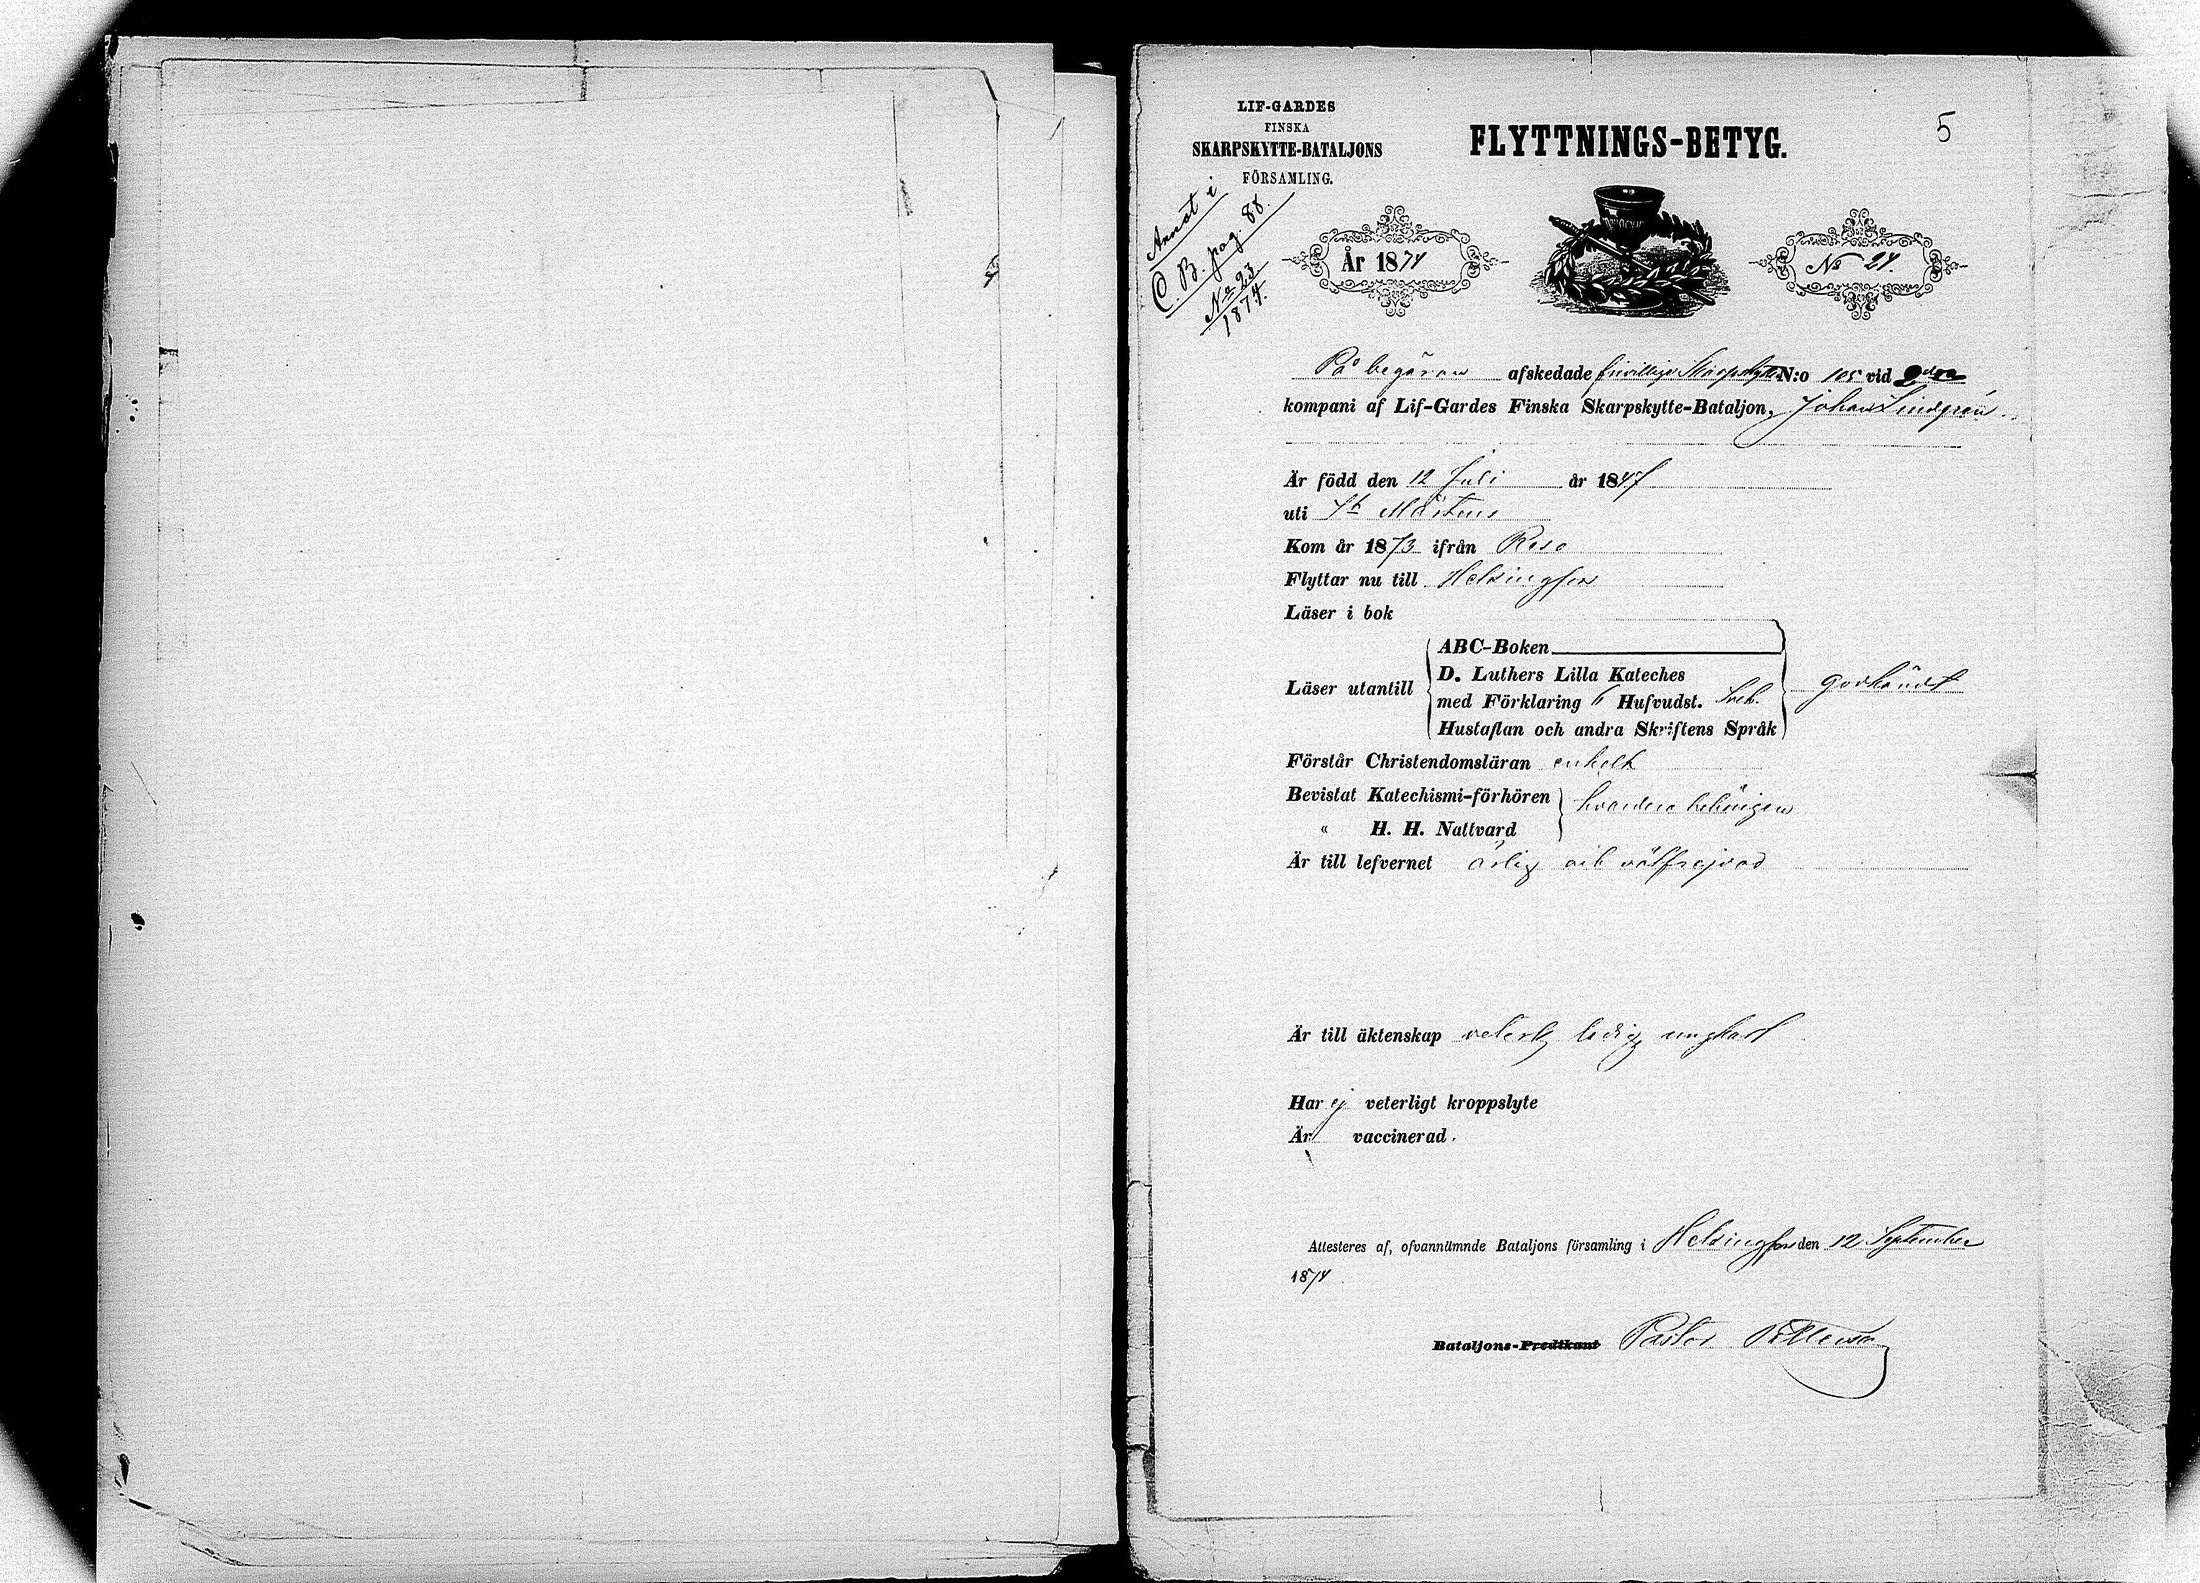 LIF-GARDES
FINSKA
SKARPSKYTTE-BATALJONS
FÖRSAMLING.
FLYTTNINGS-BETYG.
5
Annot i
C. B. pag. 88.
No 23
1874.
År 1874
No 24.
På begäran afskedade frivillige Skarpskytten N:o 105 vid 2dra
kompani af Lif-Gardes Finska Skarpskytte-Bataljon, Johan Lindgrén
Är född den 12 Juli år 1847
uti St Mårtens
Kom år 1873 ifrån Reso
Flyttar nu till Helsingfors
Läser i bok
ABC-Boken
D. Luthers Lilla Kateches
Läser utantill
godkändt
med Förklaring 6 Hufvudst.
Hustaflan och andra Skriftens Språk
Förstår Christendomsläran enkelt
Bevistat Katechismi-förhören
hvardera behörigen
" H. H. Nattvard
Är till lefvernet ärlig och välfrejdad
Är till äktenskap veterl. ledig ungkarl
Har ej veterligt kroppslyte
Är vaccinerad.
Attesteres af, ofvannämnde Bataljons församling i Helsingfors den 12 September
1874
Bataljons-Predikant Pastor